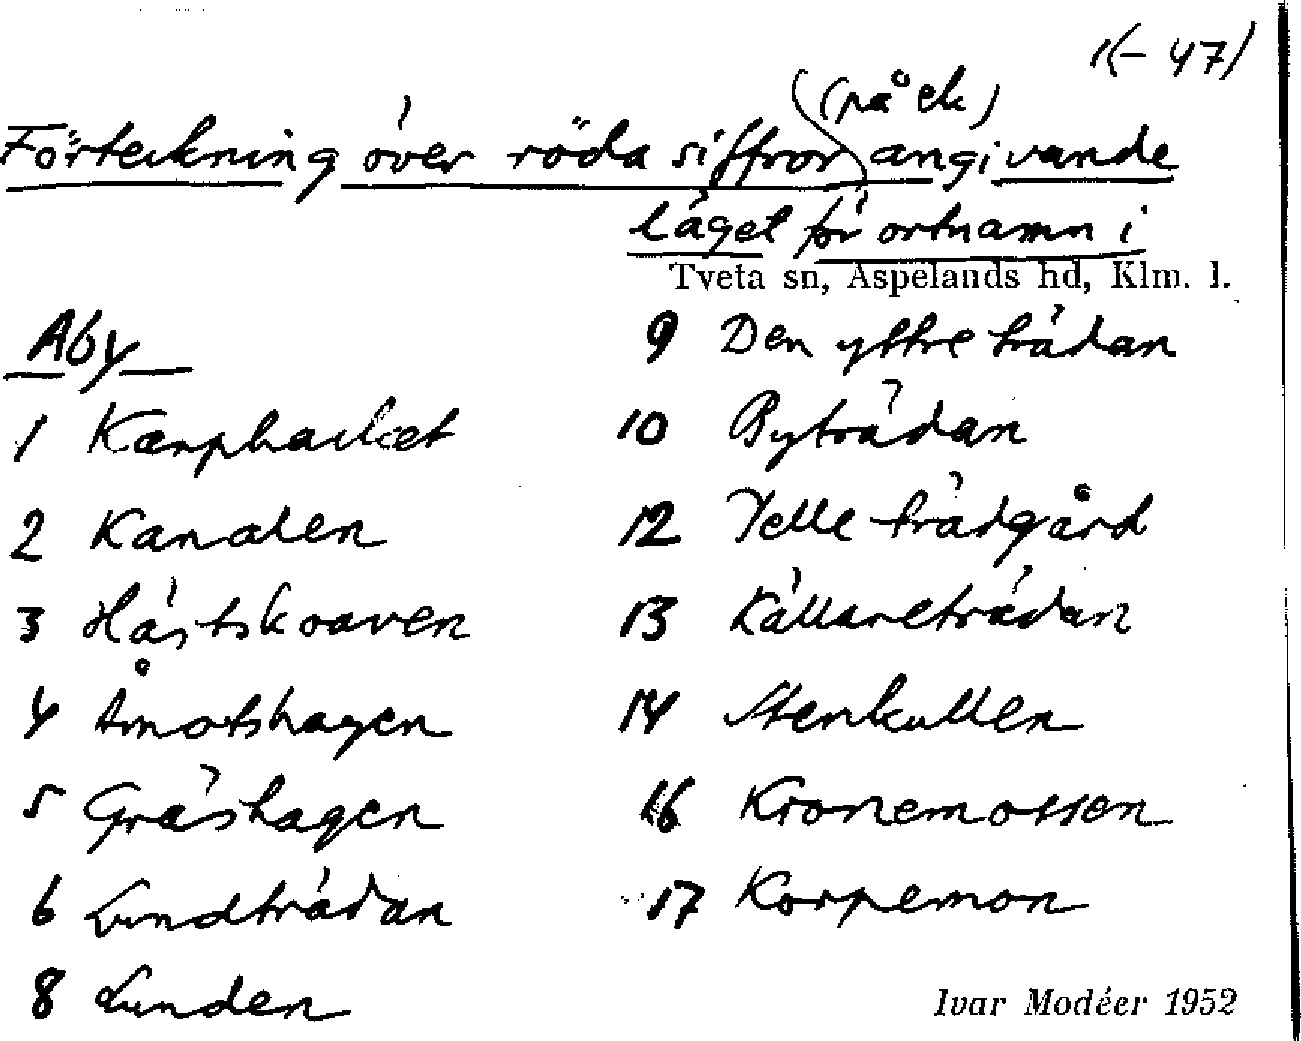 1(-47)
Förteckning över röda siffror (på ek) angivande
läget för ortnamn i
Tveta sn, Aspelands hd, Klm. l.
Åby
1 Kærphacket
2 Kanalen
3 Hästskoaven
4 Åmotshagen
5 Gräshagen
6 Lundträdan
8 Lunden
9 Den yttre trädan
10 Byträdan
12 Pelle trädgård
13 Källareträdan
14 Stenkullen
16 Kronemossen
17 Korpemon
Ivar Modéer 1952